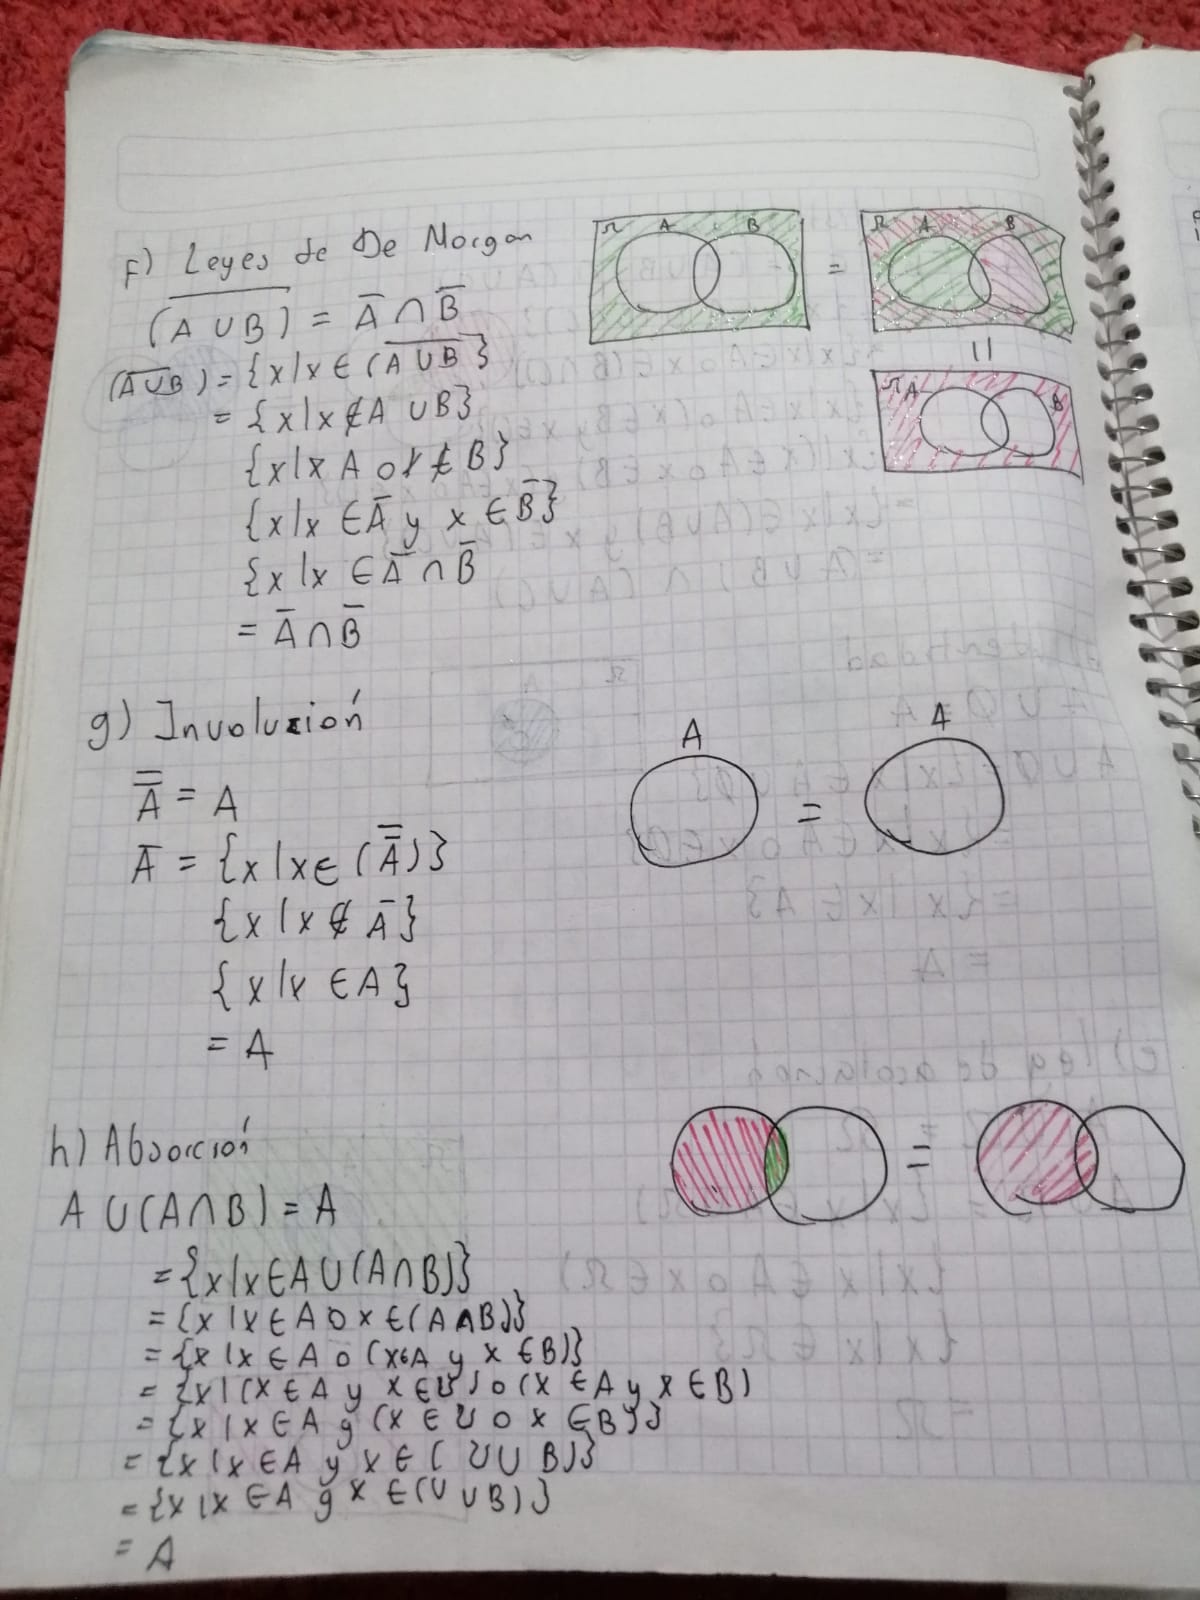 F) Leyes de De Morgan
Ω A B = Ω A B
(A ∪ B)̅ = A̅ ∩ B̅
(A̅∪̅B̅) = {x/x ∈ (A̅ ̅∪̅ ̅B̅}
= {x/x ∉ A ∪ B}
||
Ω A B
{x/x A o x ∉ B}
{x/x ∈ A̅ y x ∈ B̅}
{x/x ∈ A̅ ∩ B̅
= A̅ ∩ B̅
g) Involución
A = A
A̿ = A
A̅ = {x/x ∈ (A̿)}
{x/x ∉ A̅}
{x/x ∈ A}
= A
h) Absorción
=
A ∪ (A ∩ B) = A
= {x/x ∈ A ∪ (A ∩ B)}
= {x/x ∈ A o x ∈ (A ∩ B)}
= {x/x ∈ A o (x ∈ A y x ∈ B)}
= {x/(x ∈ A y x ∈ U) o (x ∈ A y x ∈ B)
= {x/x ∈ A y (x ∈ U o x ∈ B)}
= {x/x ∈ A y x ∈ (U ∪ B)}
= {x/x ∈ A y x ∈ (U ∪ B)}
= A